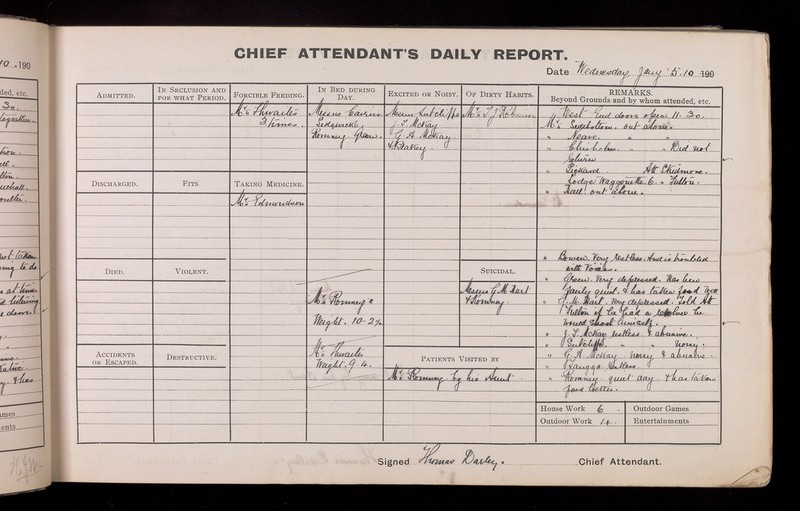 CHIEF ATTENDANT'S DAILY REPORT.
Date Wednesday Jany 5.10 190
ADMITTED.
IN SECLUSION AND FOR WHAT PERIOD.
FORCIBLE FEEDING.
IN BED DURING DAY.
EXCITED OR NOISY.
OF DIRTY HABITS.
REMARKS.
Beyond Grounds and by whom attended, etc.
Mr Thwaites
3 times.
Messrs
Sedgwick
Romney Green
Messrs Sutcliffe
J. McKay
G. A. McKay
Mr
West End doors open 11.30.
Mr Sidebottom. out alone.
" Neave. " "
" Chisholm. " " Did not
Att Skidmore.
Lodge Waggonette. 6. " Fulton.
" Hall out alone.
DISCHARGED.
FITS
TAKING MEDICINE.
Mr Edmondson
" Bowen. Very restless. And is troubled
with Voices.
" Green. Very depressed. Has been
fairly quiet. & has taken food well
" G. M. Hart. Very depressed. Told Att
Fulton if he had a revolver he
would shoot himself.
" J. McKay restless & abusive.
" Sutcliffe " " Noisy.
" G. A. McKay Noisy & abusive.
" restless.
" Romney quiet day. & has taken
food better.
DIED.
VIOLENT.
Mr Romney's
Weight. 10-2½
SUICIDAL.
Messrs G. M. Hart
& Romney
ACCIDENTS OR ESCAPED.
DESTRUCTIVE.
Mr Thwaites
Weight. 9.4.
PATIENTS VISITED BY
Mr Romney by his Aunt
House Work 6
Outdoor Games
Outdoor Work 14
Entertainments
Signed Thomas Darley. Chief Attendant.